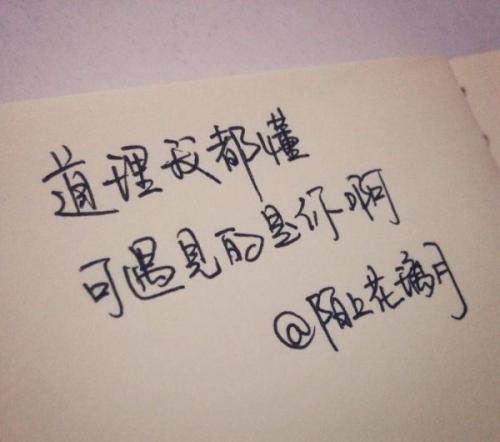 道理我都懂
可遇见的是你啊
@陌上花漓月